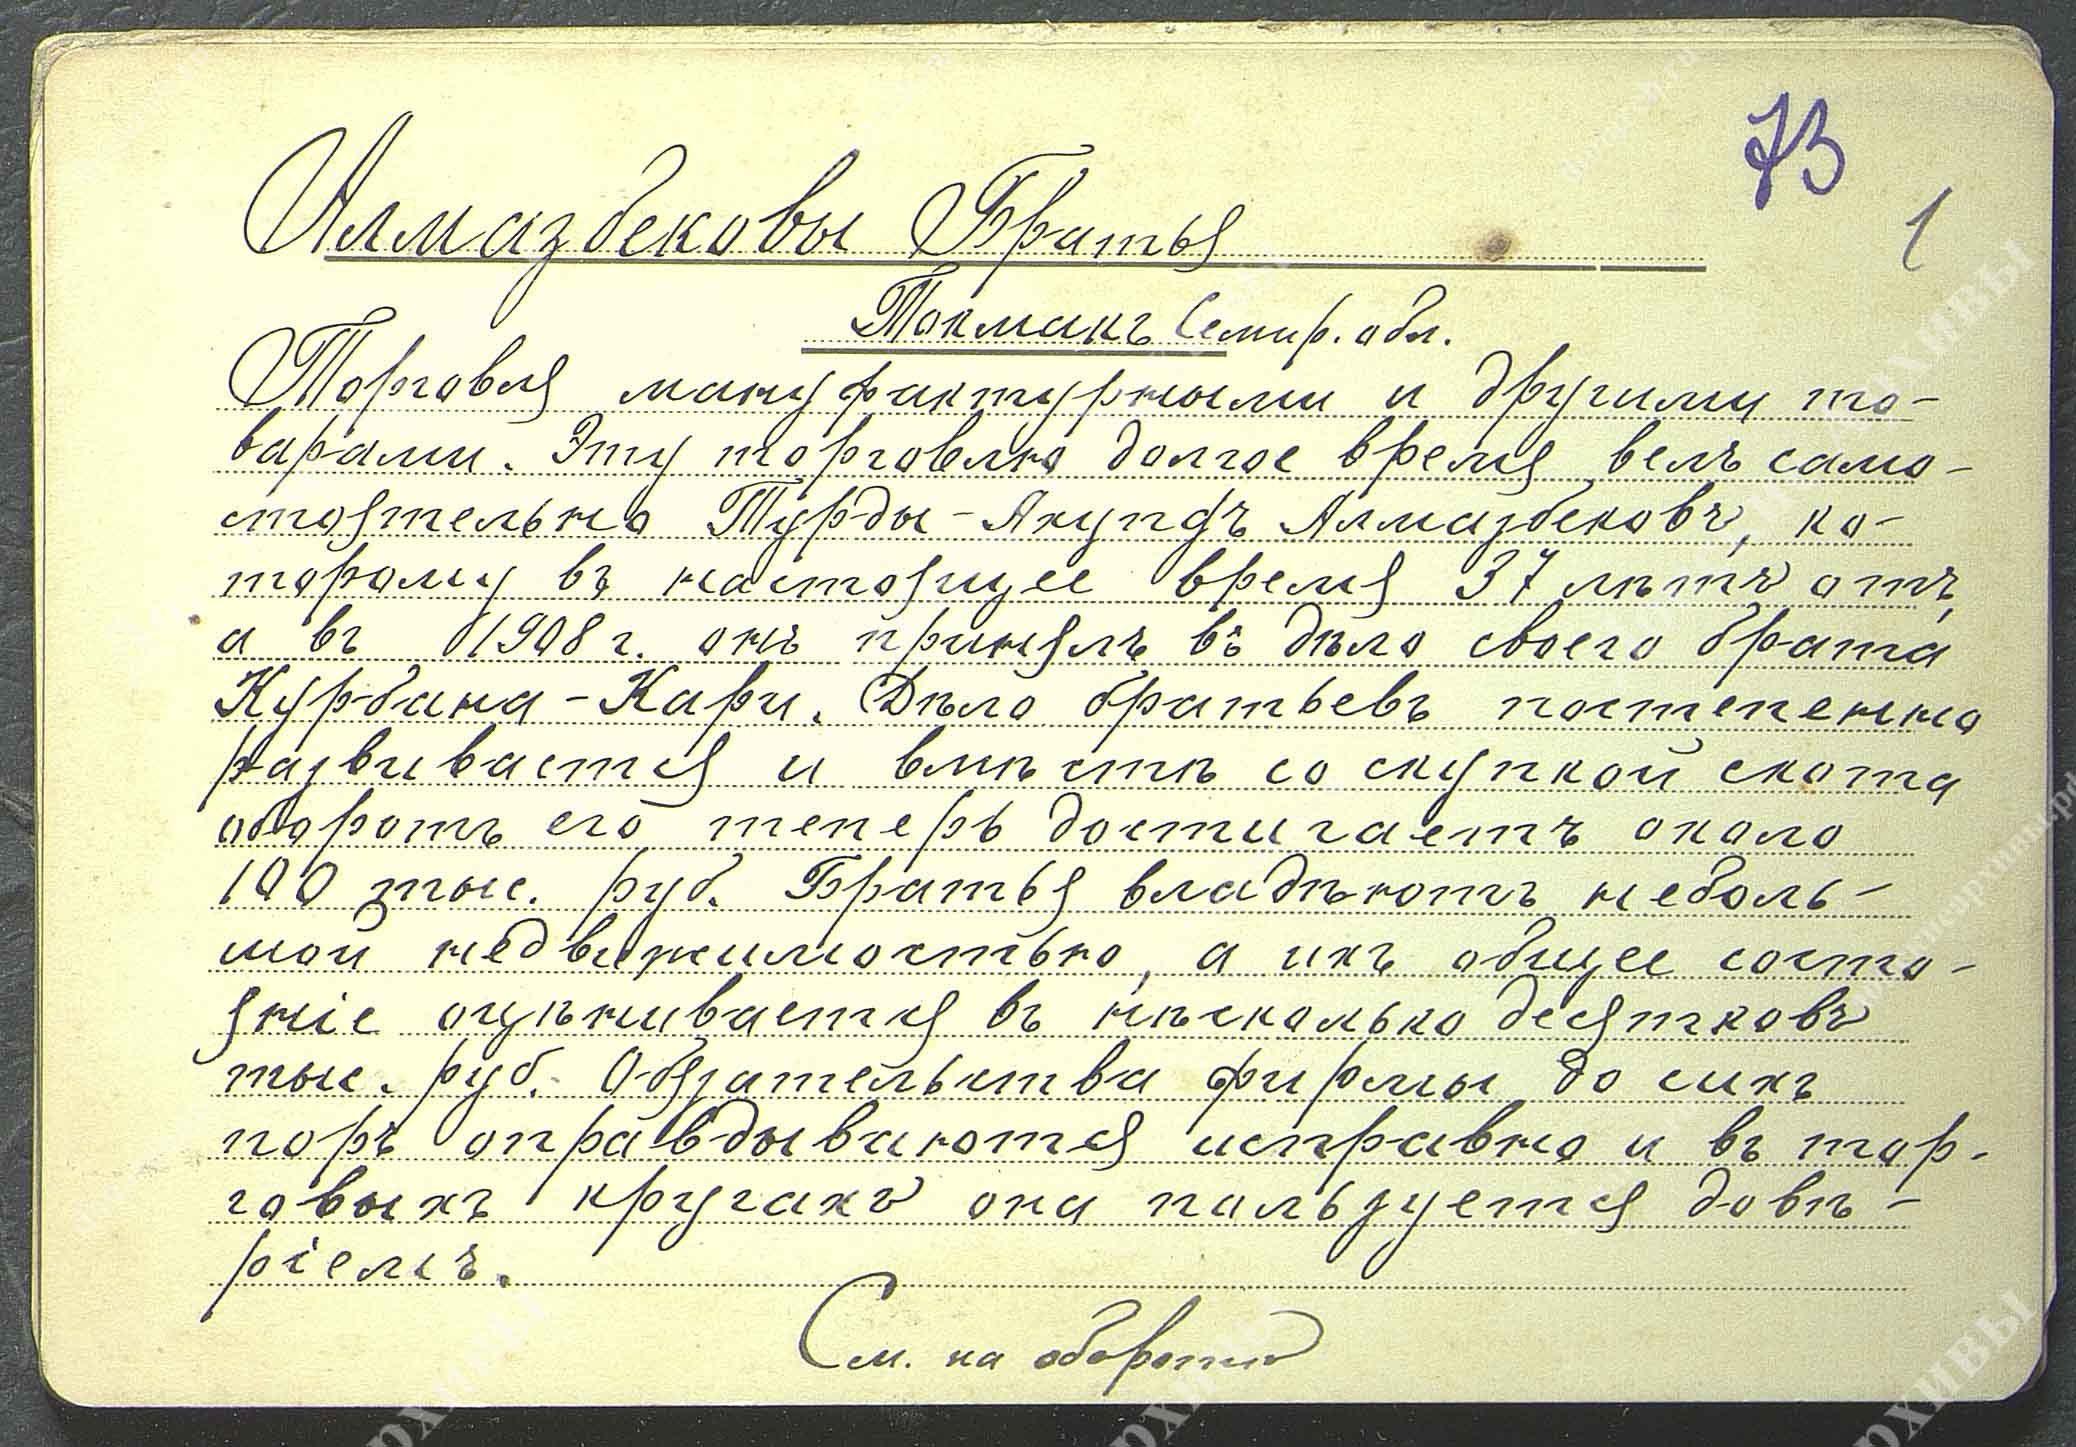 73
1
Алмазбековы Братья
Токмакъ Семир. обл.
Торговля мануфактурными и другими то-
варами. Эту торговлю долгое время велъ само-
стоятельно Турды-Ахундъ Алмазбековъ, ко-
торому въ настоящее время 37 лѣтъ отъ
а въ 1908 г. онъ принялъ въ дѣло своего брата
Курбана-Кари. Дѣло братьевъ постепенно
развивается и вмѣстѣ со скупкой скота
оборотъ его теперь достигаетъ около
100 тыс. руб. Братья владѣютъ неболь-
шой недвижимостью, а ихъ общее состо-
яніе оцѣнивается въ нѣсколько десятковъ
тыс. руб. Обязательства фирмы до сихъ
поръ оправдываются исправно и въ тор-
говыхъ кругахъ она пользуется довѣ-
ріемъ.
См. на оборотѣ